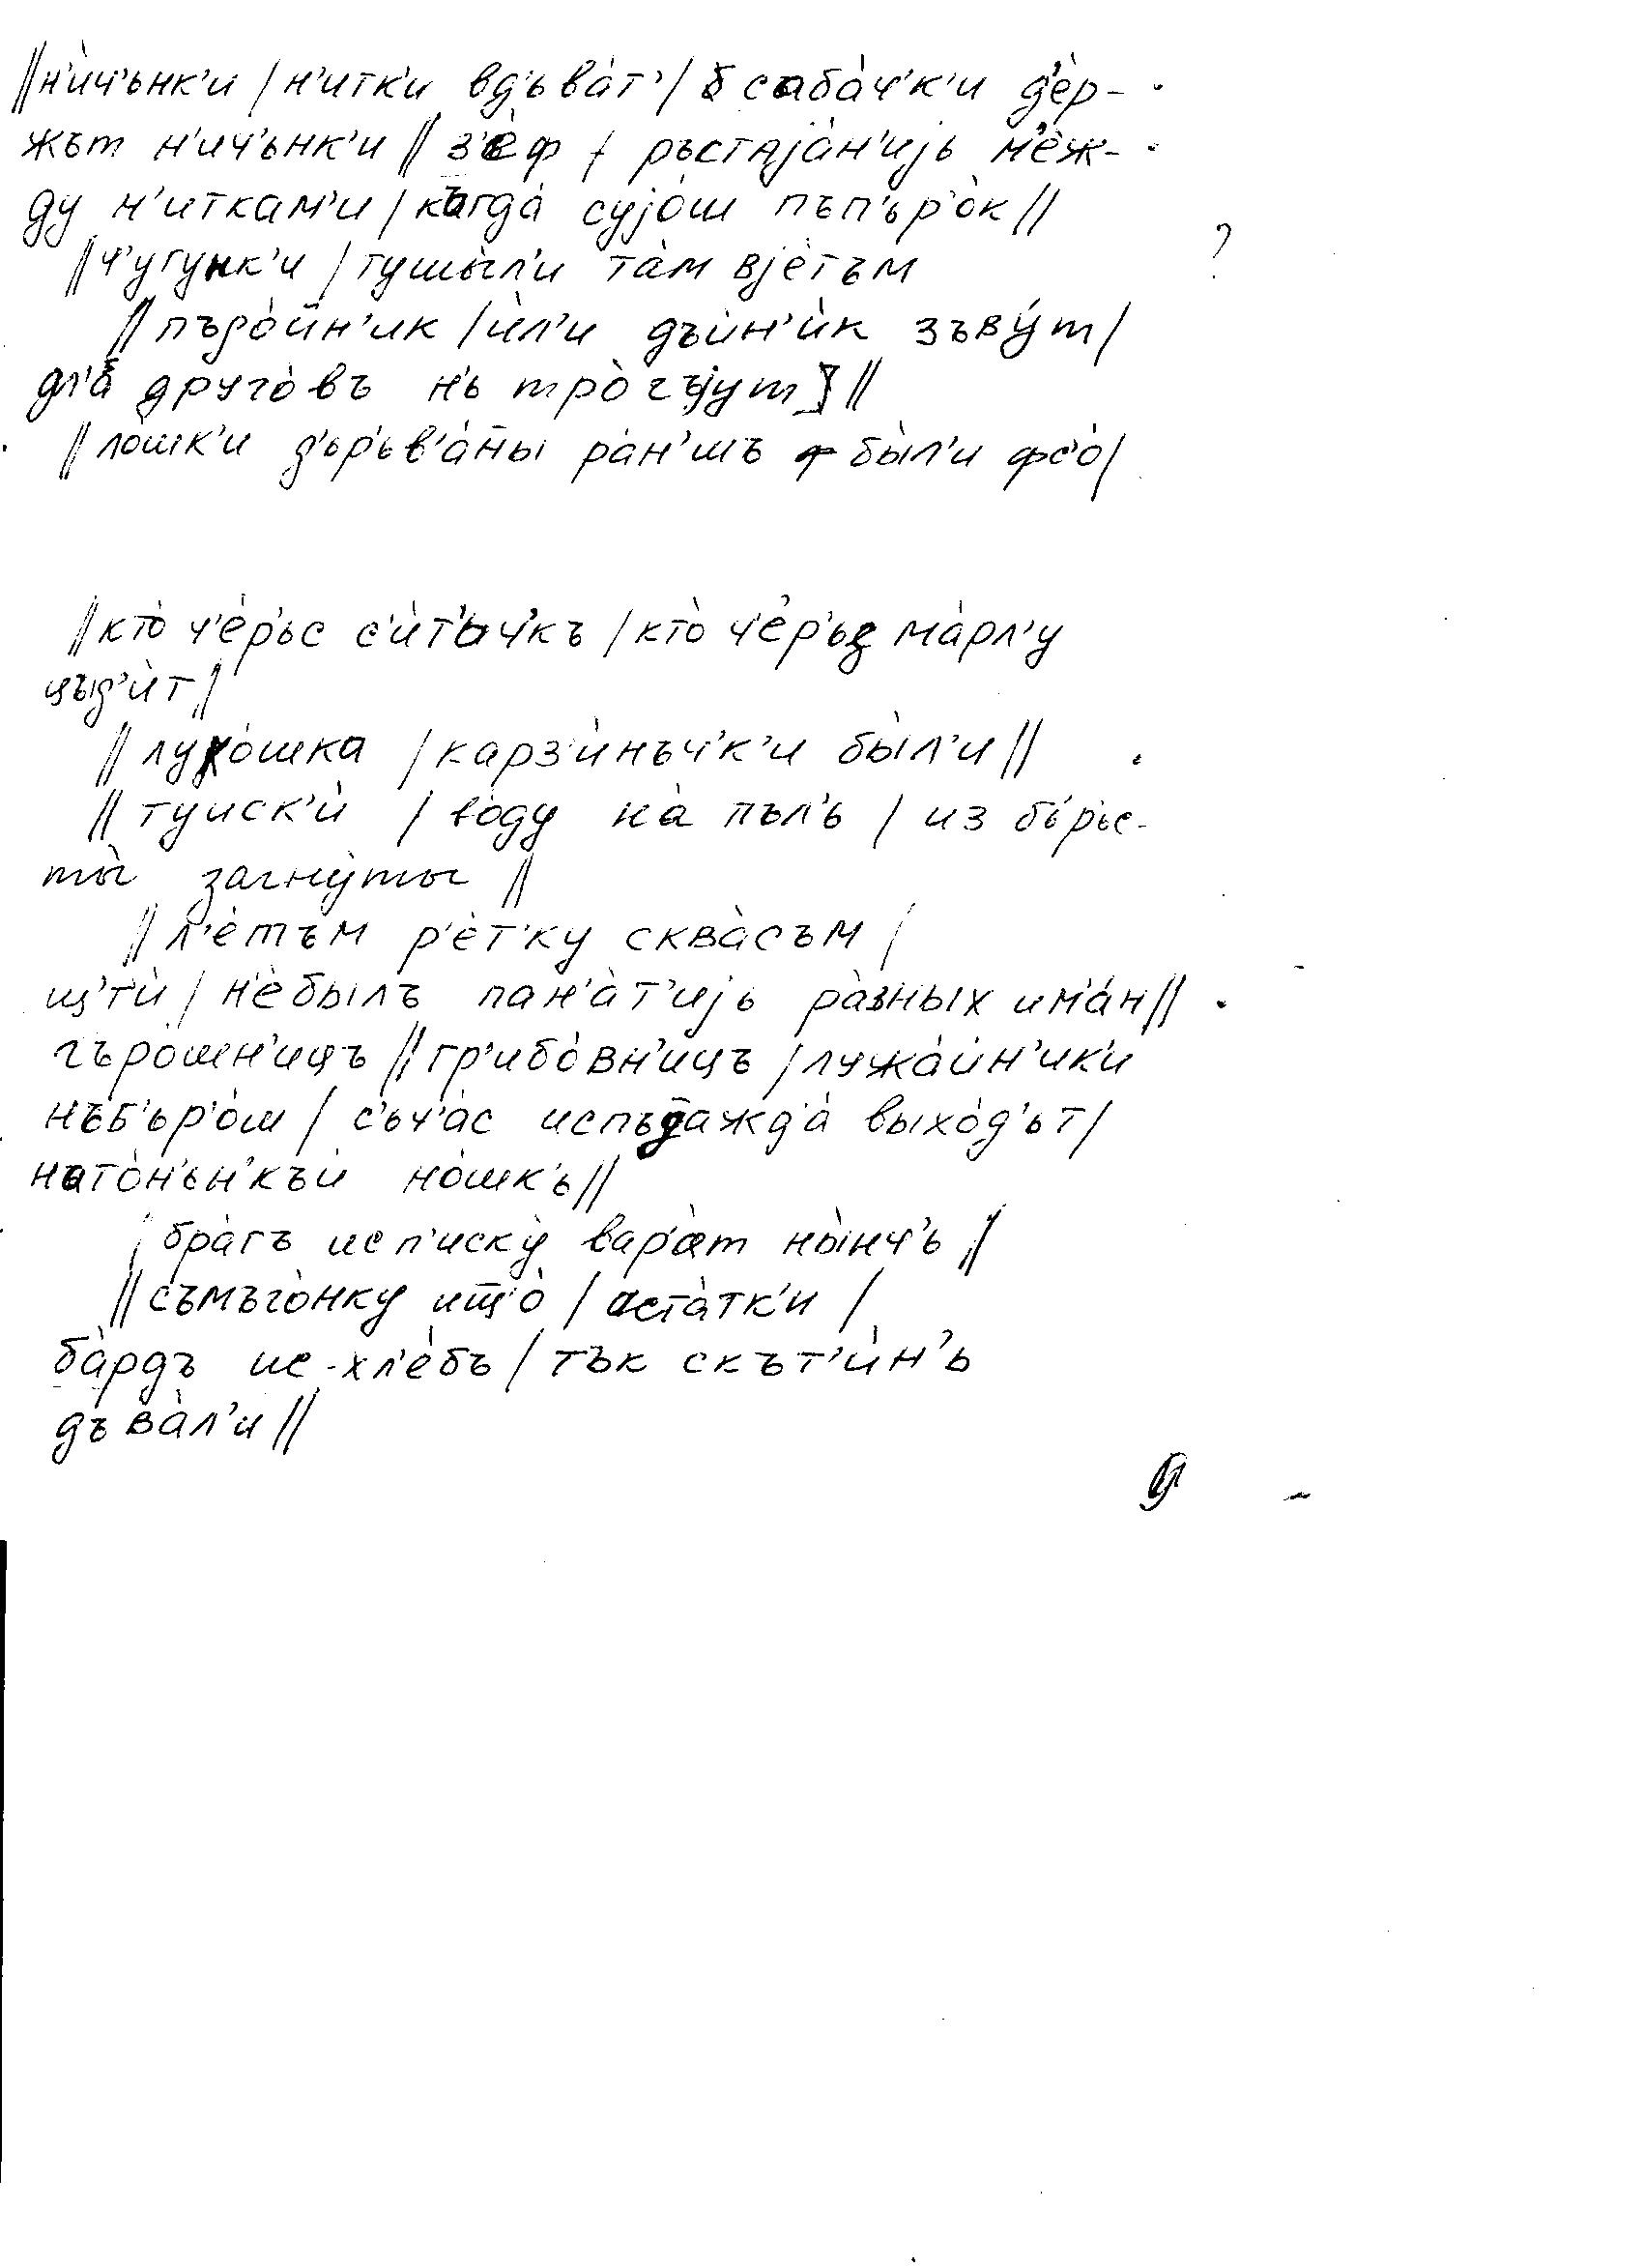 //н'ѝч'ънк'и / н'итк'и вд'ъва̀т' / сабàч'к'и д'ѐр-
жът н'ич'ънк'и // з'ѐф / ръстаjàн'иjь м'ѐж-
ду н'иткам'и / къгдá суjóш пъп'ьр'òк //
//ч'угунк'и / тушы̀л'и тàм вjѐтъм
// пъдòйн'ик / ѝл'и дъѝн'ѝк зъвýт /
дл'à другòвъ н'ь трòгъjут //
// лòшк'и д'ьр'ьв'àн̄ы рàн'шъ бы̀л'и фс'ò /
//ктò ч'ѐр'ьс с'ѝт'ьч'къ / ктò ч'ѐр'ьз мàрл'у
цъд'ѝт /
// лукóшка / карз'ѝнъч'к'и бы̀л'и //
// туиск'ѝ / вòду нà пъл'ь / из б'ьр'ьс-
ты̀ загнỳты //
// л'ѐтъм р'ѐт'ку сквàсъм /
щ'т'ѝ / н'ѐбылъ пан'àт'иjь рàзных им'áн //
гърòшн'ицъ // гр'ибòвн'ицъ / лужàйн'ик'и
нъб'ьр'óш / с'ьч'áс испъдажд'à выхòд'ьт /
натòн'ьн'къй нòшк'ь //
/ брàгъ исп'искỳ вар'àт ны̀нч'ь //
// съмъгòнку ищ̄'ò / астàтк'и /
бàрдъ ис-хл'ѐбъ / тък скът'ѝн'ь
дъвàл'и //